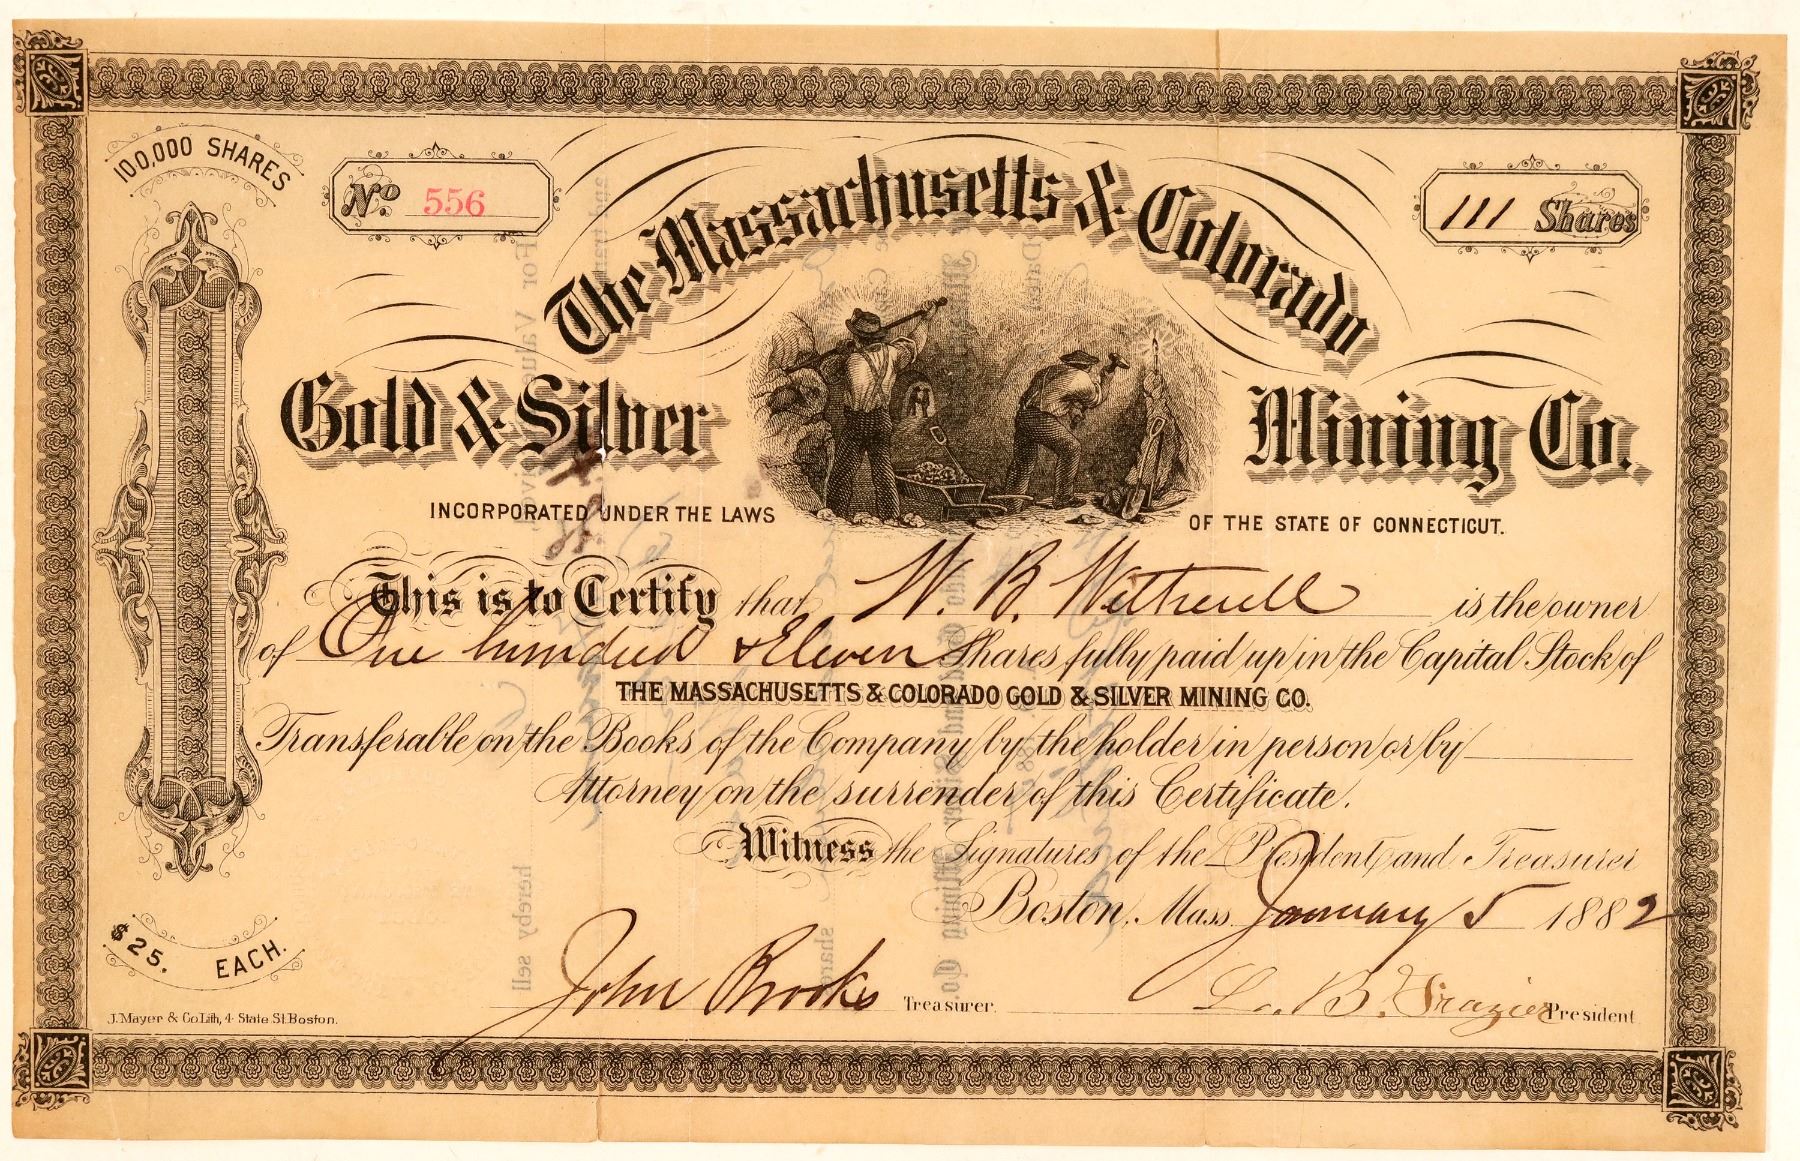 100,000 SHARES
No. 556
111 Shares
The Massachusetts & Colorado
Gold & Silver Mining Co.
INCORPORATED UNDER THE LAWS OF THE STATE OF CONNECTICUT.
This is to Certify that W. B. Witherell is the owner
of One hundred & Eleven Shares fully paid up in the Capital Stock of
THE MASSACHUSETTS & COLORADO GOLD & SILVER MINING CO.
Transferable on the Books of the Company by the holder in person or by
Attorney on the surrender of this Certificate.
Witness the Signatures of the President and Treasurer
Boston, Mass. January 5 1882
$25. EACH.
John Brooks Treasurer.
L. B. Frazier President
J. Mayer & Co Lith, 4 State St. Boston.